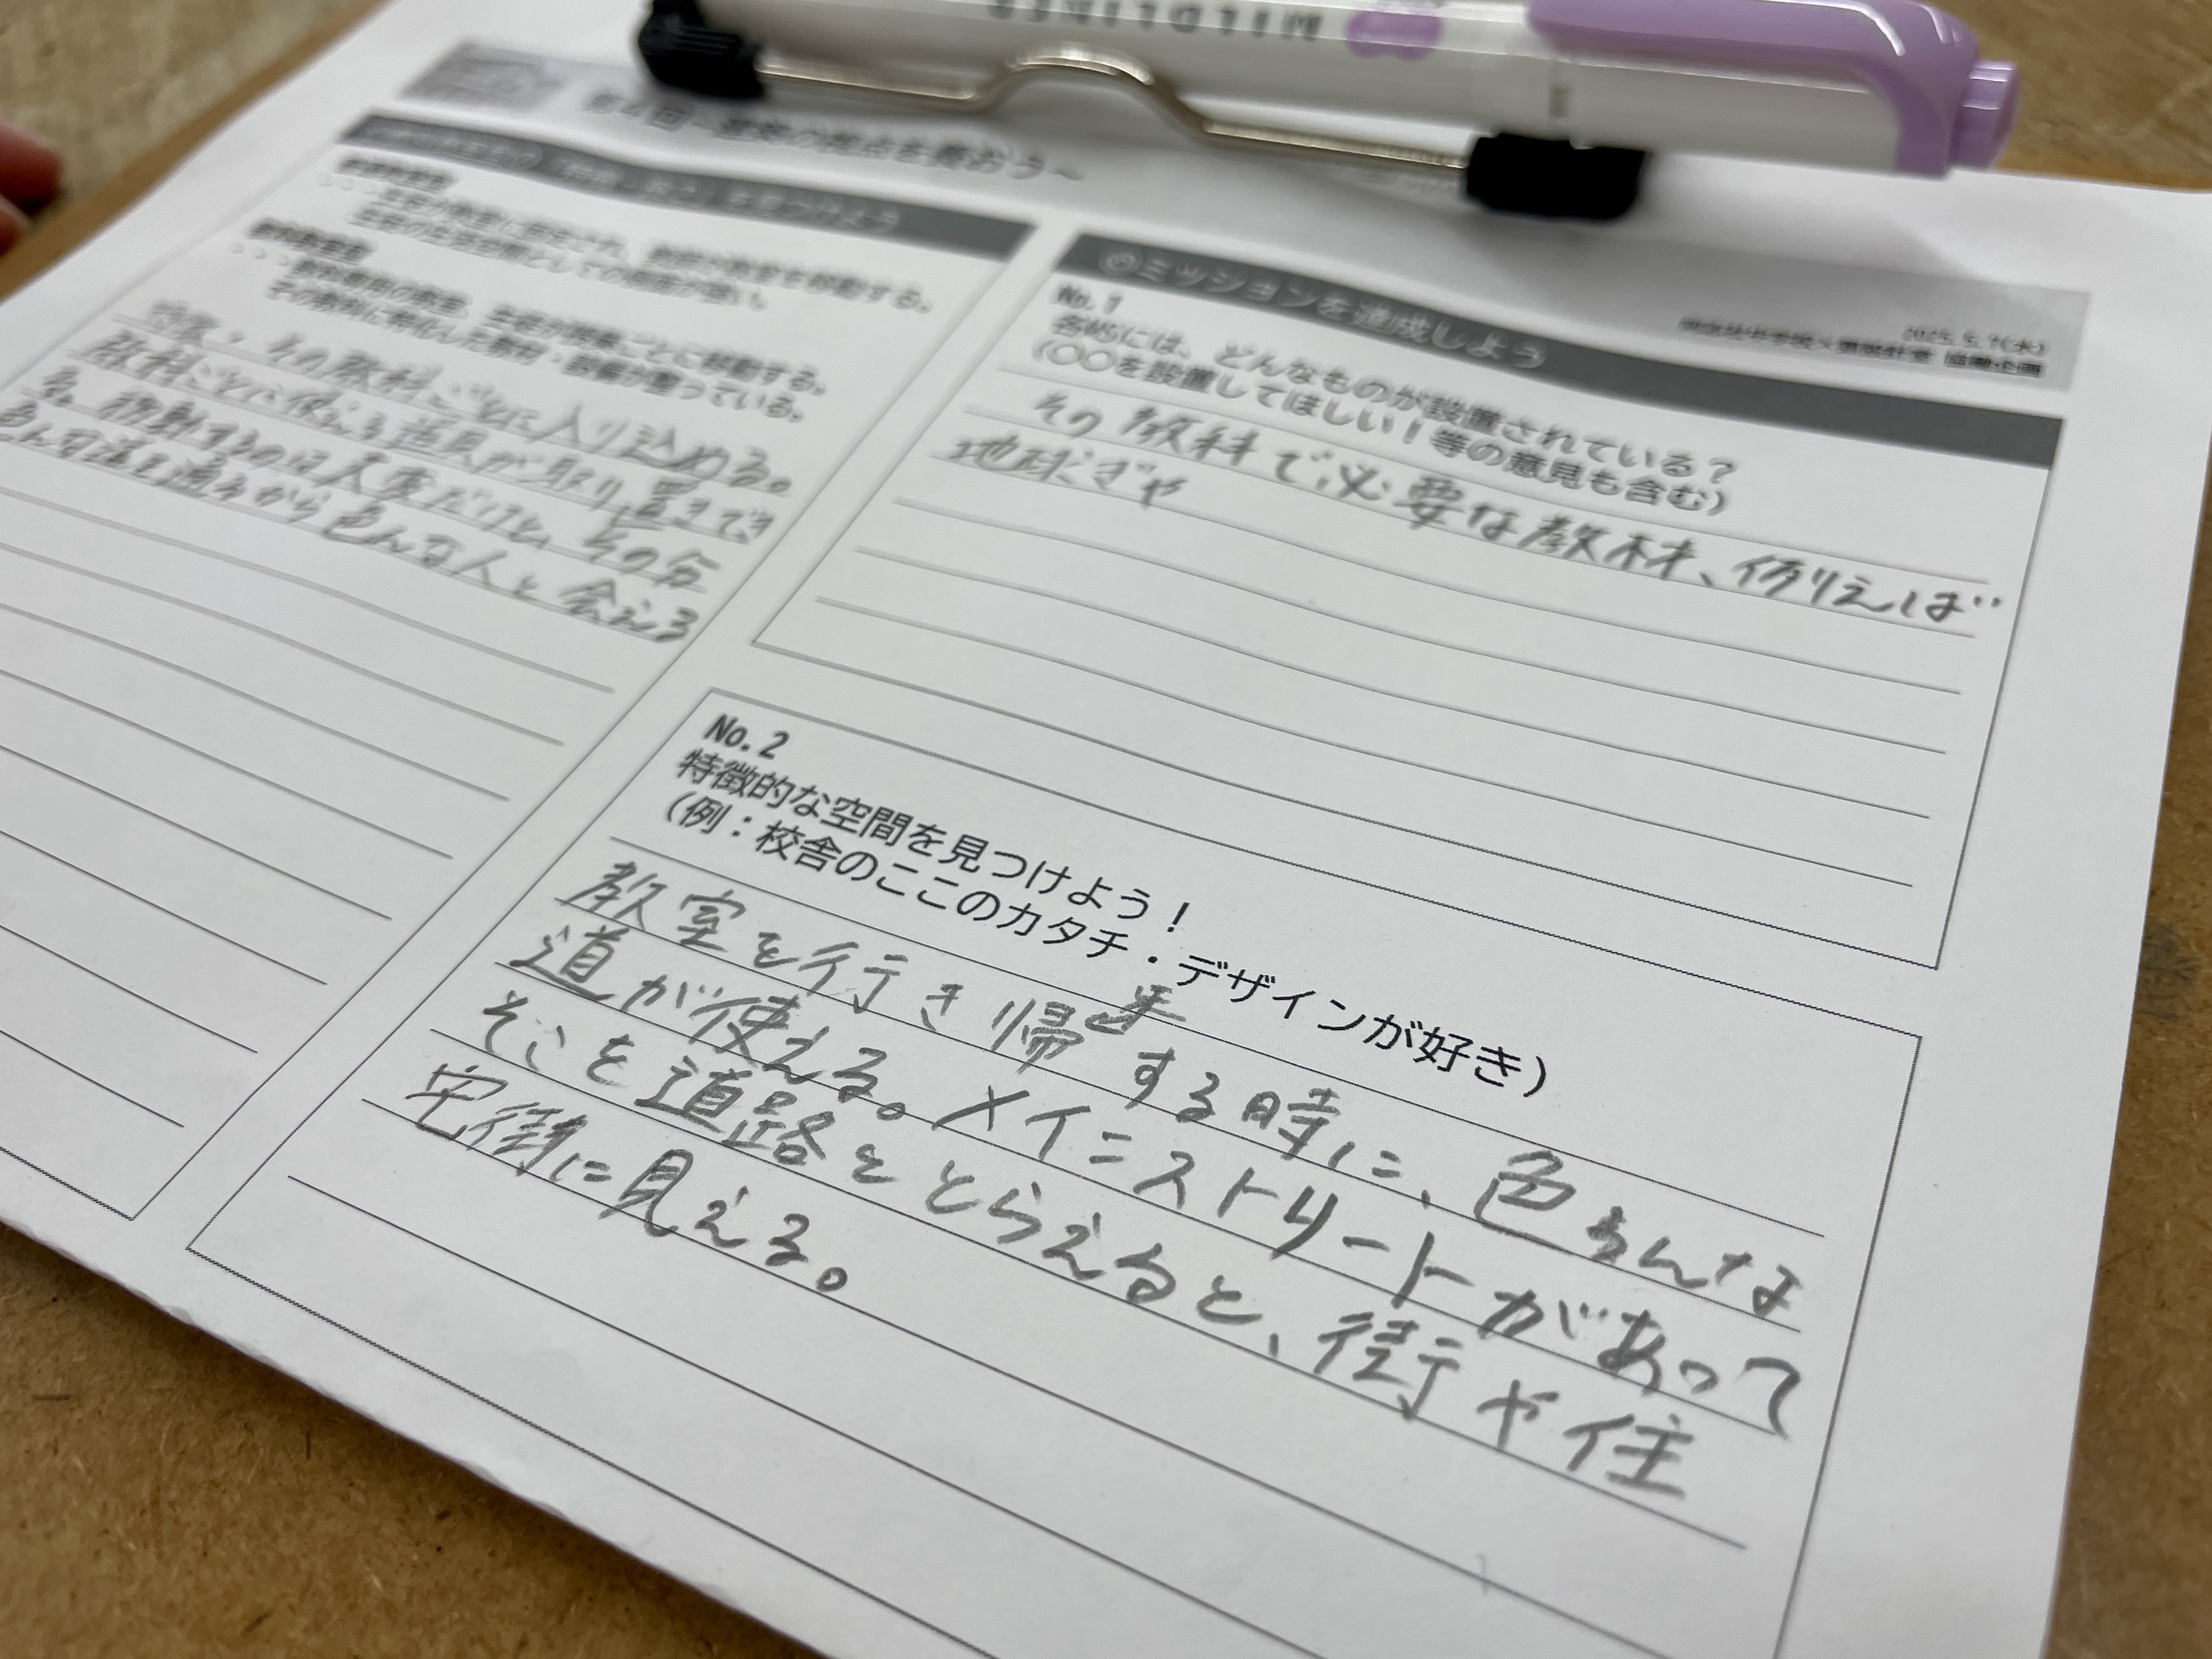 MILDLINER
第4回~建築の視点を養おう~
を見つけよう
・・・生徒が教室に固定され、教師が教室を移動する。
生徒の生活空間としての側面が強い。
・・・教科専用の教室。生徒が授業ごとに移動する。
その教科に特化した教材・設備が整っている。
その教科ごとに入り込める。
教科ごとに使える道具が取り置きでき
る。移動するのは大変だけど、その分
色んな道を通るから色んな人と会える
◎ミッションを達成しよう
No.1
各MSには、どんなものが設置されている?
(○○を設置してほしい!等の意見も含む)
その教科で必要な教材、例えば
地球ぎや
No.2
特徴的な空間を見つけよう!
(例:校舎のここのカタチ・デザインが好き)
教室を行き帰する時に、色ぁんな
道が使える。メインストリートがあって
そこを道路ととらえると、街や住
宅街に見える。